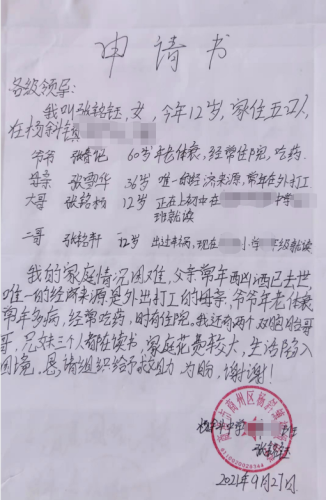 申请书
各级领导:
我叫张铭钰,女,今年12岁,家住五口人,
在杨斜镇
爷爷 张春记 60岁 年老体衰,经常住院,吃药.
母亲 张雪华 36岁 唯一的经济来源,常年在外打工
大哥 张铭 12岁 正在上初中在 中学
班就读
二哥 张铭轩 12岁 出过车祸,现在 小学 年级就读
我的家庭情况困难,父亲常年酗酒已去世,
唯一的经济来源是外出打工的母亲,爷爷年老体衰
常年多病,经常吃药,时有住院。我还有两个双胞胎哥
哥,兄妹三个人都在读书,家庭花费较大,生活陷入
困境,恳请组织给予救助为盼,谢谢!
商州区杨斜镇
中学
张铭钰
2021年9月27日